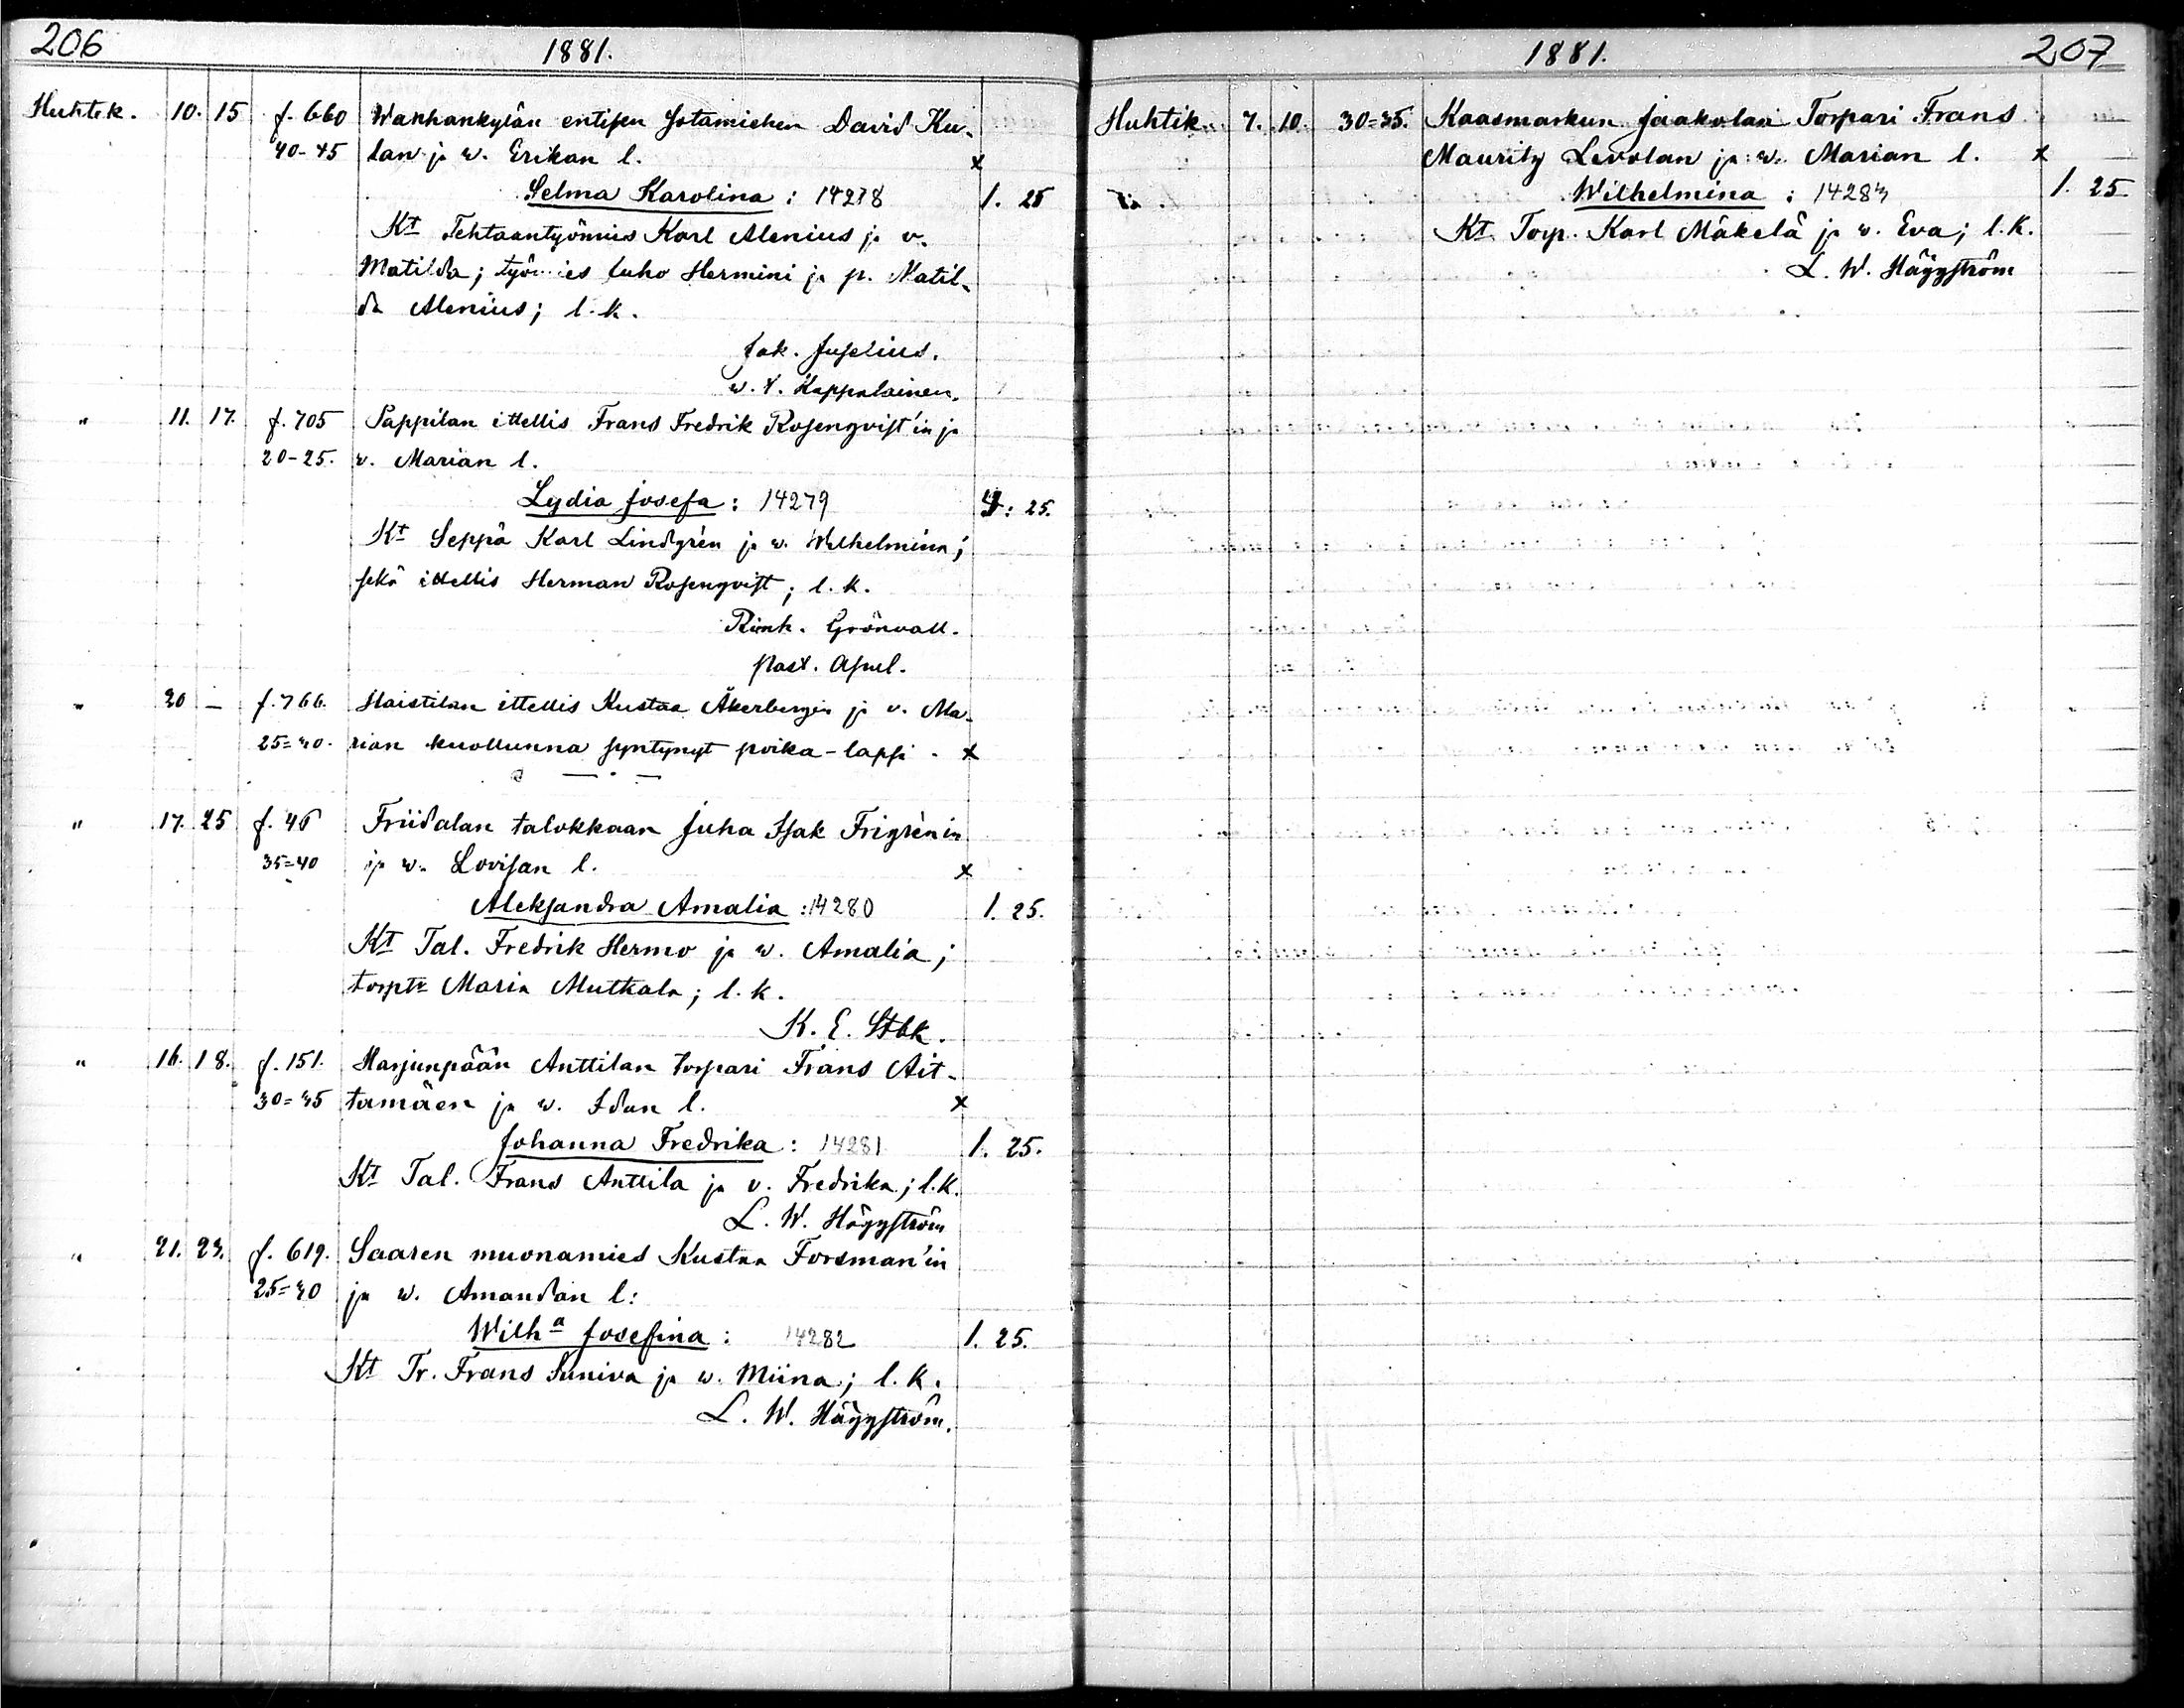 206
1881.
Huhtik. 10. 15 f. 660 Wanhankylän entisen sotamiehen David Ku-
40-45 lan ja w. Erikan l. x
Selma Karolina : 14278 1. 25
Kt Tehtaantyömies Karl Alenius ja v.
Matilda; työmies Juho Hermini ja p. Matil-
da Alenius; l. k.
Jak. Juselius.
w. t. Kappalainen.
" 11. 17. f. 705 Pappilan itellis Frans Fredrik Rosenqvist'in ja
20-25. v. Marian l.
Lydia Josefa : 14279 : 25.
Kt Seppä Karl Lindgrén ja w. Wilhelmina;
sekä itellis Herman Rosenqvist; l. k.
Rink. Grönvall.
past. apul.
" 20 — f. 766. Haistilan ittellis Kustaa Åkerbergin ja v. Ma-
25=30. rian kuolluna syntynyt poika-lapsi. x
" 17. 25 f. 46 Friidalan talokkaan Juha Isak Frigrénin
35=40 ja w. Lovisan l. x
Aleksandra Amalia : 14280 1. 25.
Kt Tal. Fredrik Hermo ja w. Amalia;
torptr Maria Mutkala; l. k.
K. E. Stbk.
" 16. 18. f. 151. Harjunpään Anttilan torpari Frans Ait-
30=35 tamäen ja w. Idan l. x
Johanna Fredrika : 14281 1. 25.
Kt Tal. Frans Anttila ja v. Fredrika; l. k.
L. W. Häggström
" 21. 23. f. 619. Saaren muonamies Kustaa Forsman'in
25=30 ja w. Amandan l:
Wilha Josefina : 14282 1. 25.
Kt Tr. Frans Suniva ja w. Miina; l. k.
L. W. Häggström.
1881.
207
Huhtik. 7. 10. 30=35. Kaasmarkun Jaakolan Torpari Frans
Mauritz Levolan ja w. Marian l. x
Wilhelmina : 14283 1. 25
Kt Torp. Karl Mäkelä ja w. Eva; l. k.
L. W. Häggström